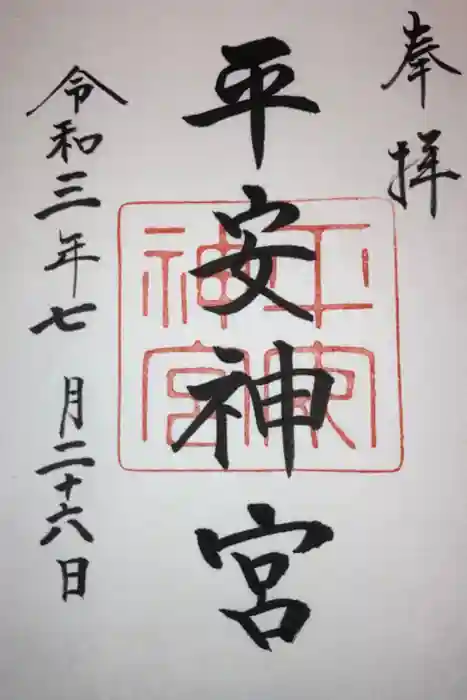 奉拝
平安神宮
平安神宮
令和三年七月二十六日